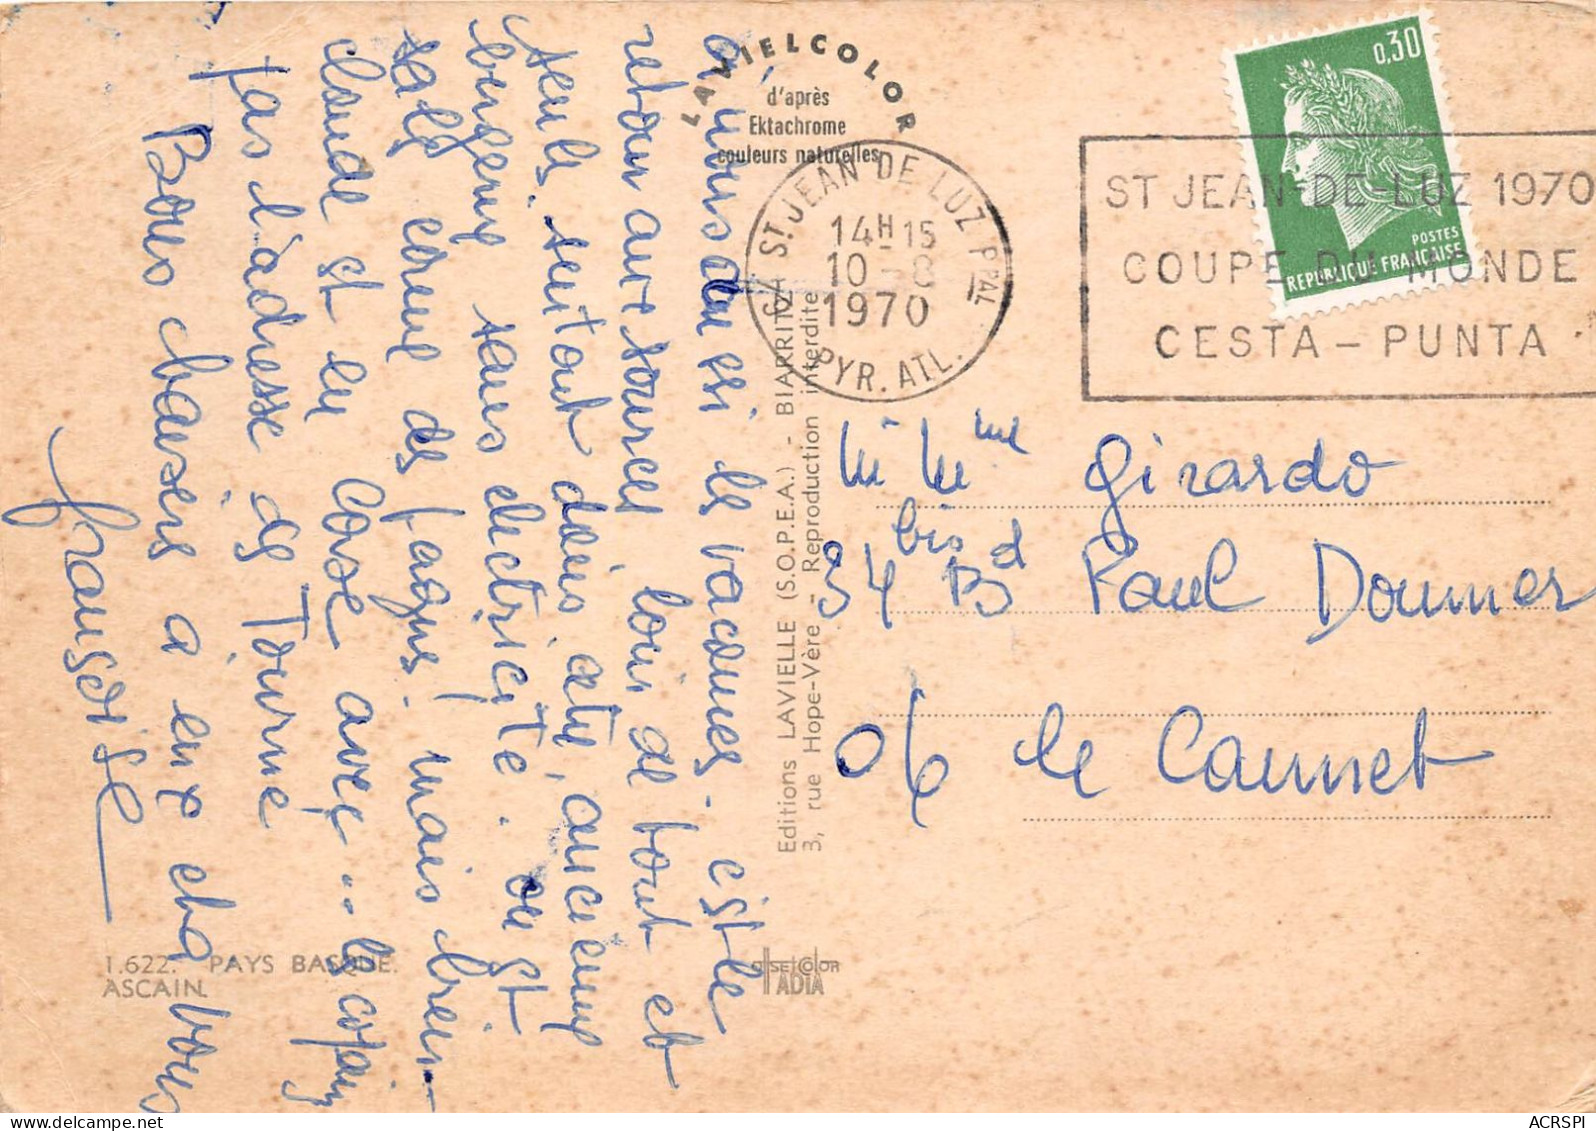 LAVIELCOLOR
d'après
Ektachrome
couleurs naturelles
0,30
POSTES
REPUBLIQUE FRANÇAISE
64 ST. JEAN DE LUZ PPAL
14H15
10-8
1970
PYR. ATL.
ST JEAN-DE-LUZ 1970
COUPE DU MONDE
CESTA-PUNTA
à nous aussi les vacances. c'est le
retour aux sources loin de tout et
seuls. surtout dans cette ancienne
bergerie sans électricité. on st
sale comme des peignes. mais bien.
Claude st en Corse avec... les copains
pas l'adresse de Tourne
Bons baisers a eux et a vous
françoise
Editions LAVIELLE (S.O.P.E.A.) - BIARRITZ
3, rue Hope-Vère - Reproduction interdite
M Mme Girardo
34 bis Bd Paul Doumer
06 le Cannet
1.622. PAYS BASQUE.
ASCAIN.
ADIA
ACRSPI